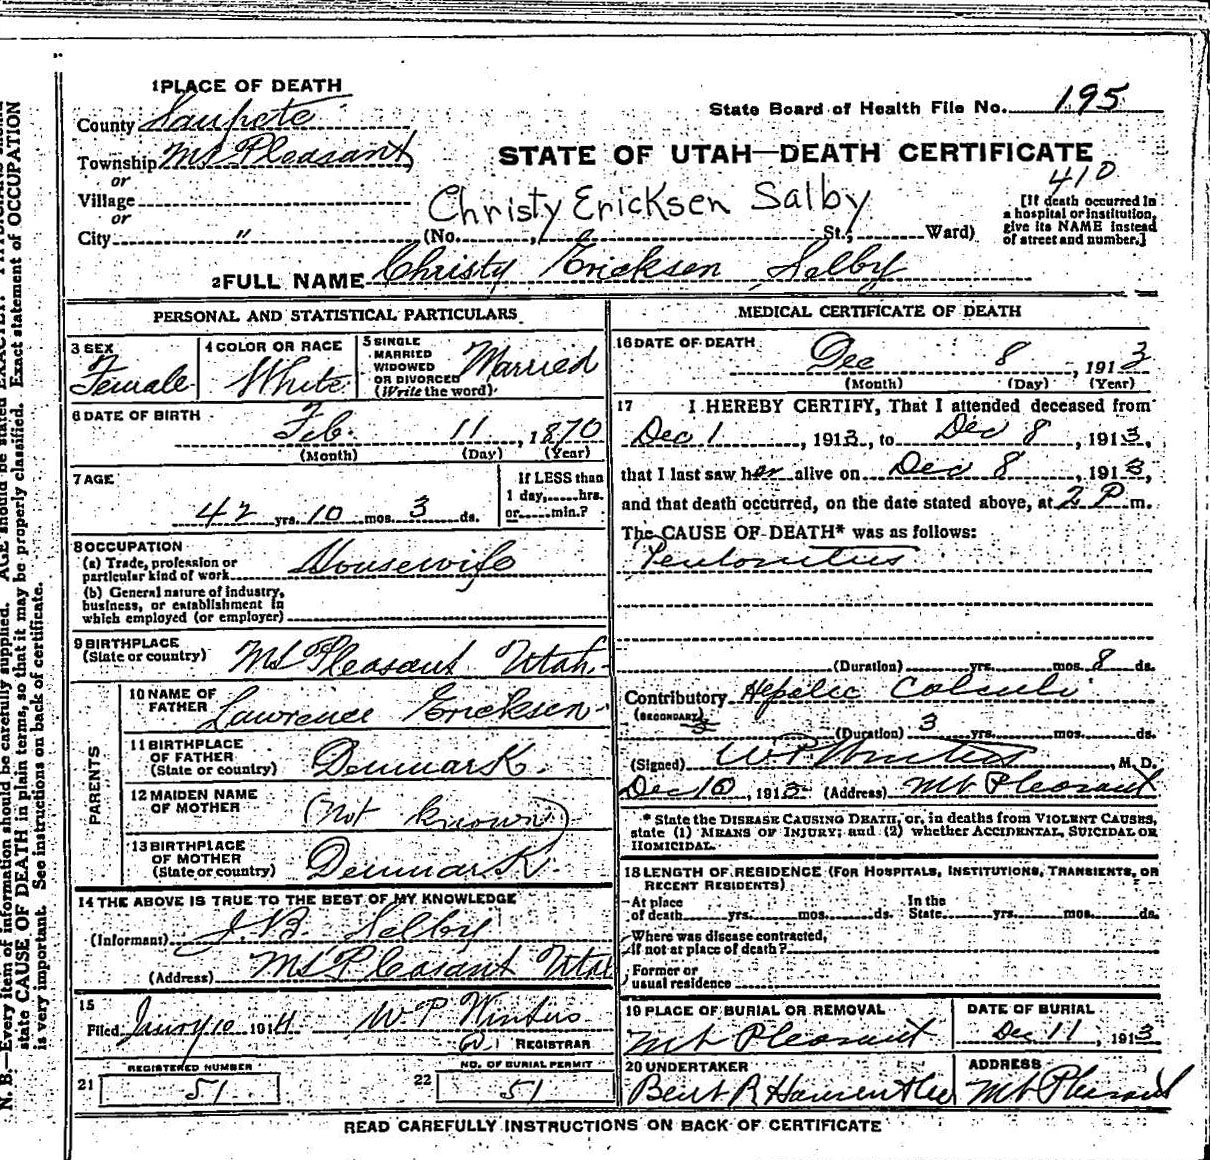 1 PLACE OF DEATH
County Sanpete
State Board of Health File No. 195
Township Mt Pleasant
or
Village
or
City "
STATE OF UTAH—DEATH CERTIFICATE
410
Christy Ericksen Salby
(No. , St., Ward)
[If death occurred in
a hospital or institution,
give its NAME instead
of street and number.]
2 FULL NAME Christy Ericksen Selby
PERSONAL AND STATISTICAL PARTICULARS
3 SEX
Female
4 COLOR OR RACE
White
5 SINGLE
MARRIED
WIDOWED
OR DIVORCED
(Write the word)
Married
6 DATE OF BIRTH
Feb. 11, 1870
(Month) (Day) (Year)
7 AGE
42 yrs. 10 mos. 3 ds.
If LESS than
1 day, hrs.
or min.?
8 OCCUPATION
(a) Trade, profession or
particular kind of work Housewife
(b) General nature of industry,
business, or establishment in
which employed (or employer)
9 BIRTHPLACE
(State or country) Mt Pleasant Utah
PARENTS
10 NAME OF
FATHER Lawrence Ericksen
11 BIRTHPLACE
OF FATHER
(State or country) Denmark.
12 MAIDEN NAME
OF MOTHER (Not known)
13 BIRTHPLACE
OF MOTHER
(State or country) Denmark.
14 THE ABOVE IS TRUE TO THE BEST OF MY KNOWLEDGE
(Informant) Selby
(Address) Mt Pleasant Utah
15
Filed 10 1914 W P Winters
REGISTRAR
REGISTERED NUMBER
21 51
NO. OF BURIAL PERMIT
22 51
MEDICAL CERTIFICATE OF DEATH
16 DATE OF DEATH
Dec 8, 1913
(Month) (Day) (Year)
17 I HEREBY CERTIFY, That I attended deceased from
Dec 1, 1913, to Dec 8, 1913,
that I last saw her alive on Dec 8, 1913,
and that death occurred, on the date stated above, at 2 P m.
The CAUSE OF DEATH* was as follows:
(Duration) yrs. mos. 8 ds.
Contributory Calculi
(SECONDARY)
(Duration) 3 yrs. mos. ds.
(Signed) W P Winters, M. D.
Dec 10, 1913 (Address) Mt Pleasant
* State the DISEASE CAUSING DEATH, or, in deaths from VIOLENT CAUSES,
state (1) MEANS OF INJURY; and (2) whether ACCIDENTAL, SUICIDAL OR
HOMICIDAL.
18 LENGTH OF RESIDENCE (FOR HOSPITALS, INSTITUTIONS, TRANSIENTS, OR
RECENT RESIDENTS)
At place
of death yrs. mos. ds.
In the
State yrs. mos. ds.
Where was disease contracted,
if not at place of death?
Former or
usual residence
19 PLACE OF BURIAL OR REMOVAL
Mt Pleasant
DATE OF BURIAL
Dec 11, 1913
20 UNDERTAKER
Bent R Hansen
ADDRESS
Mt Pleasant
READ CAREFULLY INSTRUCTIONS ON BACK OF CERTIFICATE
N. B.—Every item of information should be carefully supplied. AGE should be stated EXACTLY.
state CAUSE OF DEATH in plain terms, so that it may be properly classified. Exact statement of OCCUPATION
is very important. See instructions on back of certificate.